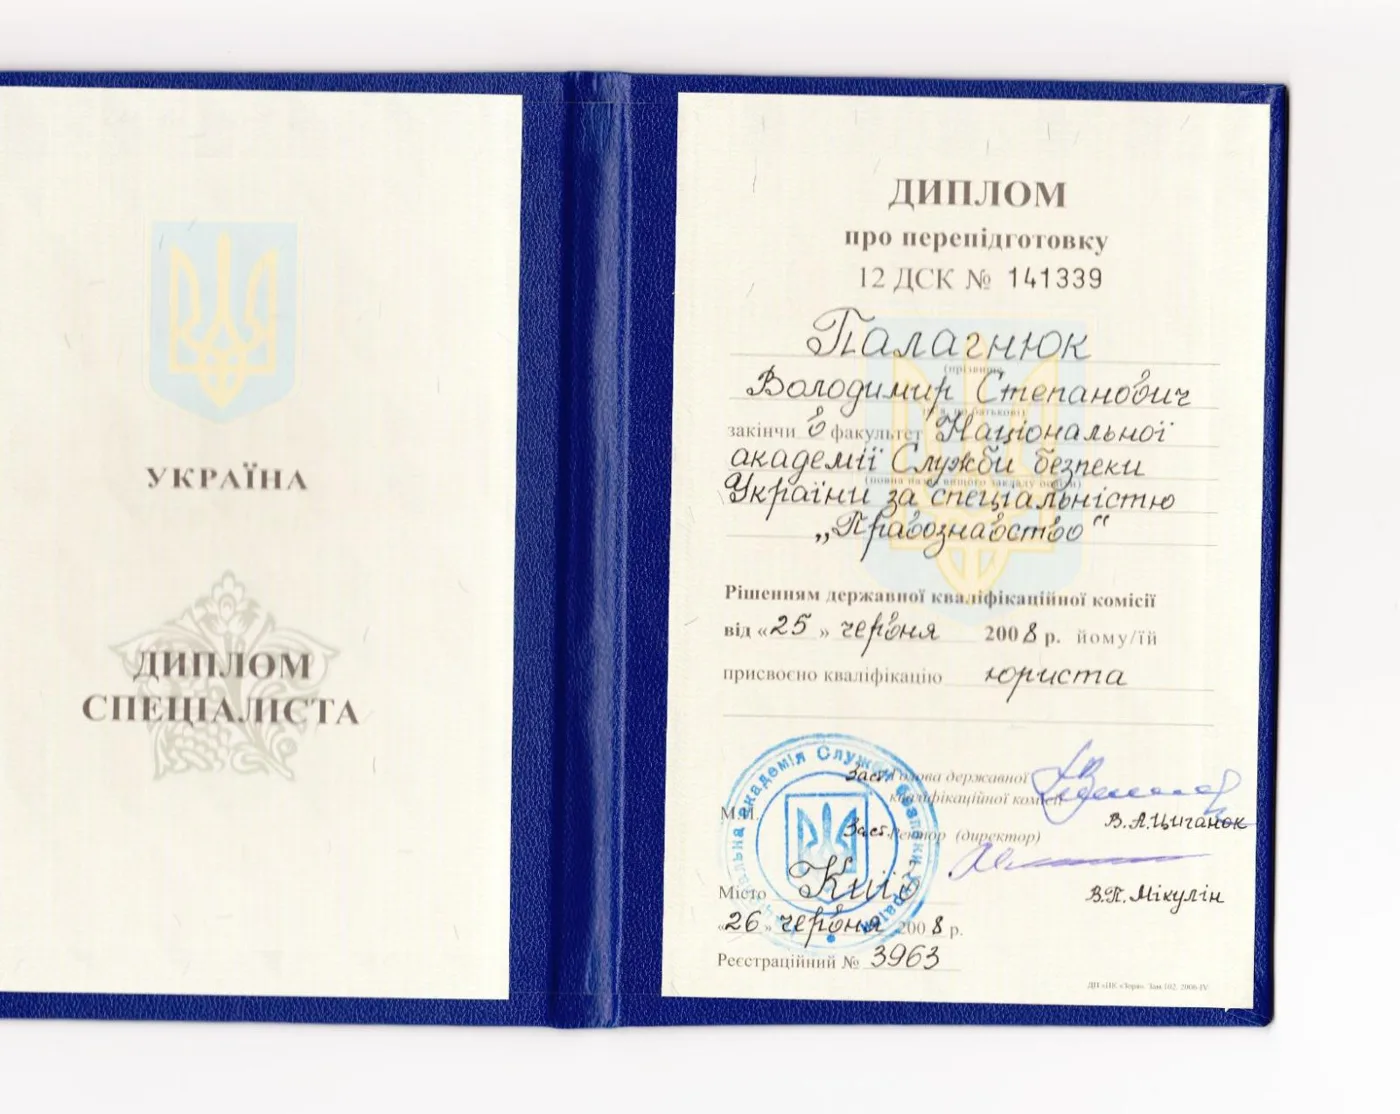 УКРАЇНА
ДИПЛОМ
СПЕЦІАЛІСТА
ДИПЛОМ
про перепідготовку
12 ДСК № 141339
Палагнюк
(прізвище,
Володимир Степанович
батькові)
закінчи в факультет Національної
академії Служби безпеки
(повна назва вищого закладу освіти)
України за спеціальністю
„Правознавство“
Рішенням державної кваліфікаційної комісії
від «25» червня 2008 р. йому/їй
присвоєно кваліфікацію юриста
Заст. Голова державної
кваліфікаційної комісії
В.А.Циганок
М.П.
Заст. Ректор (директор)
В.П. Мікулін
Місто Київ
«26» червня 2008 р.
Реєстраційний № 3963
академія Служби безпеки України
ДП «ПК «Зоря». Зам.102. 2006-IV